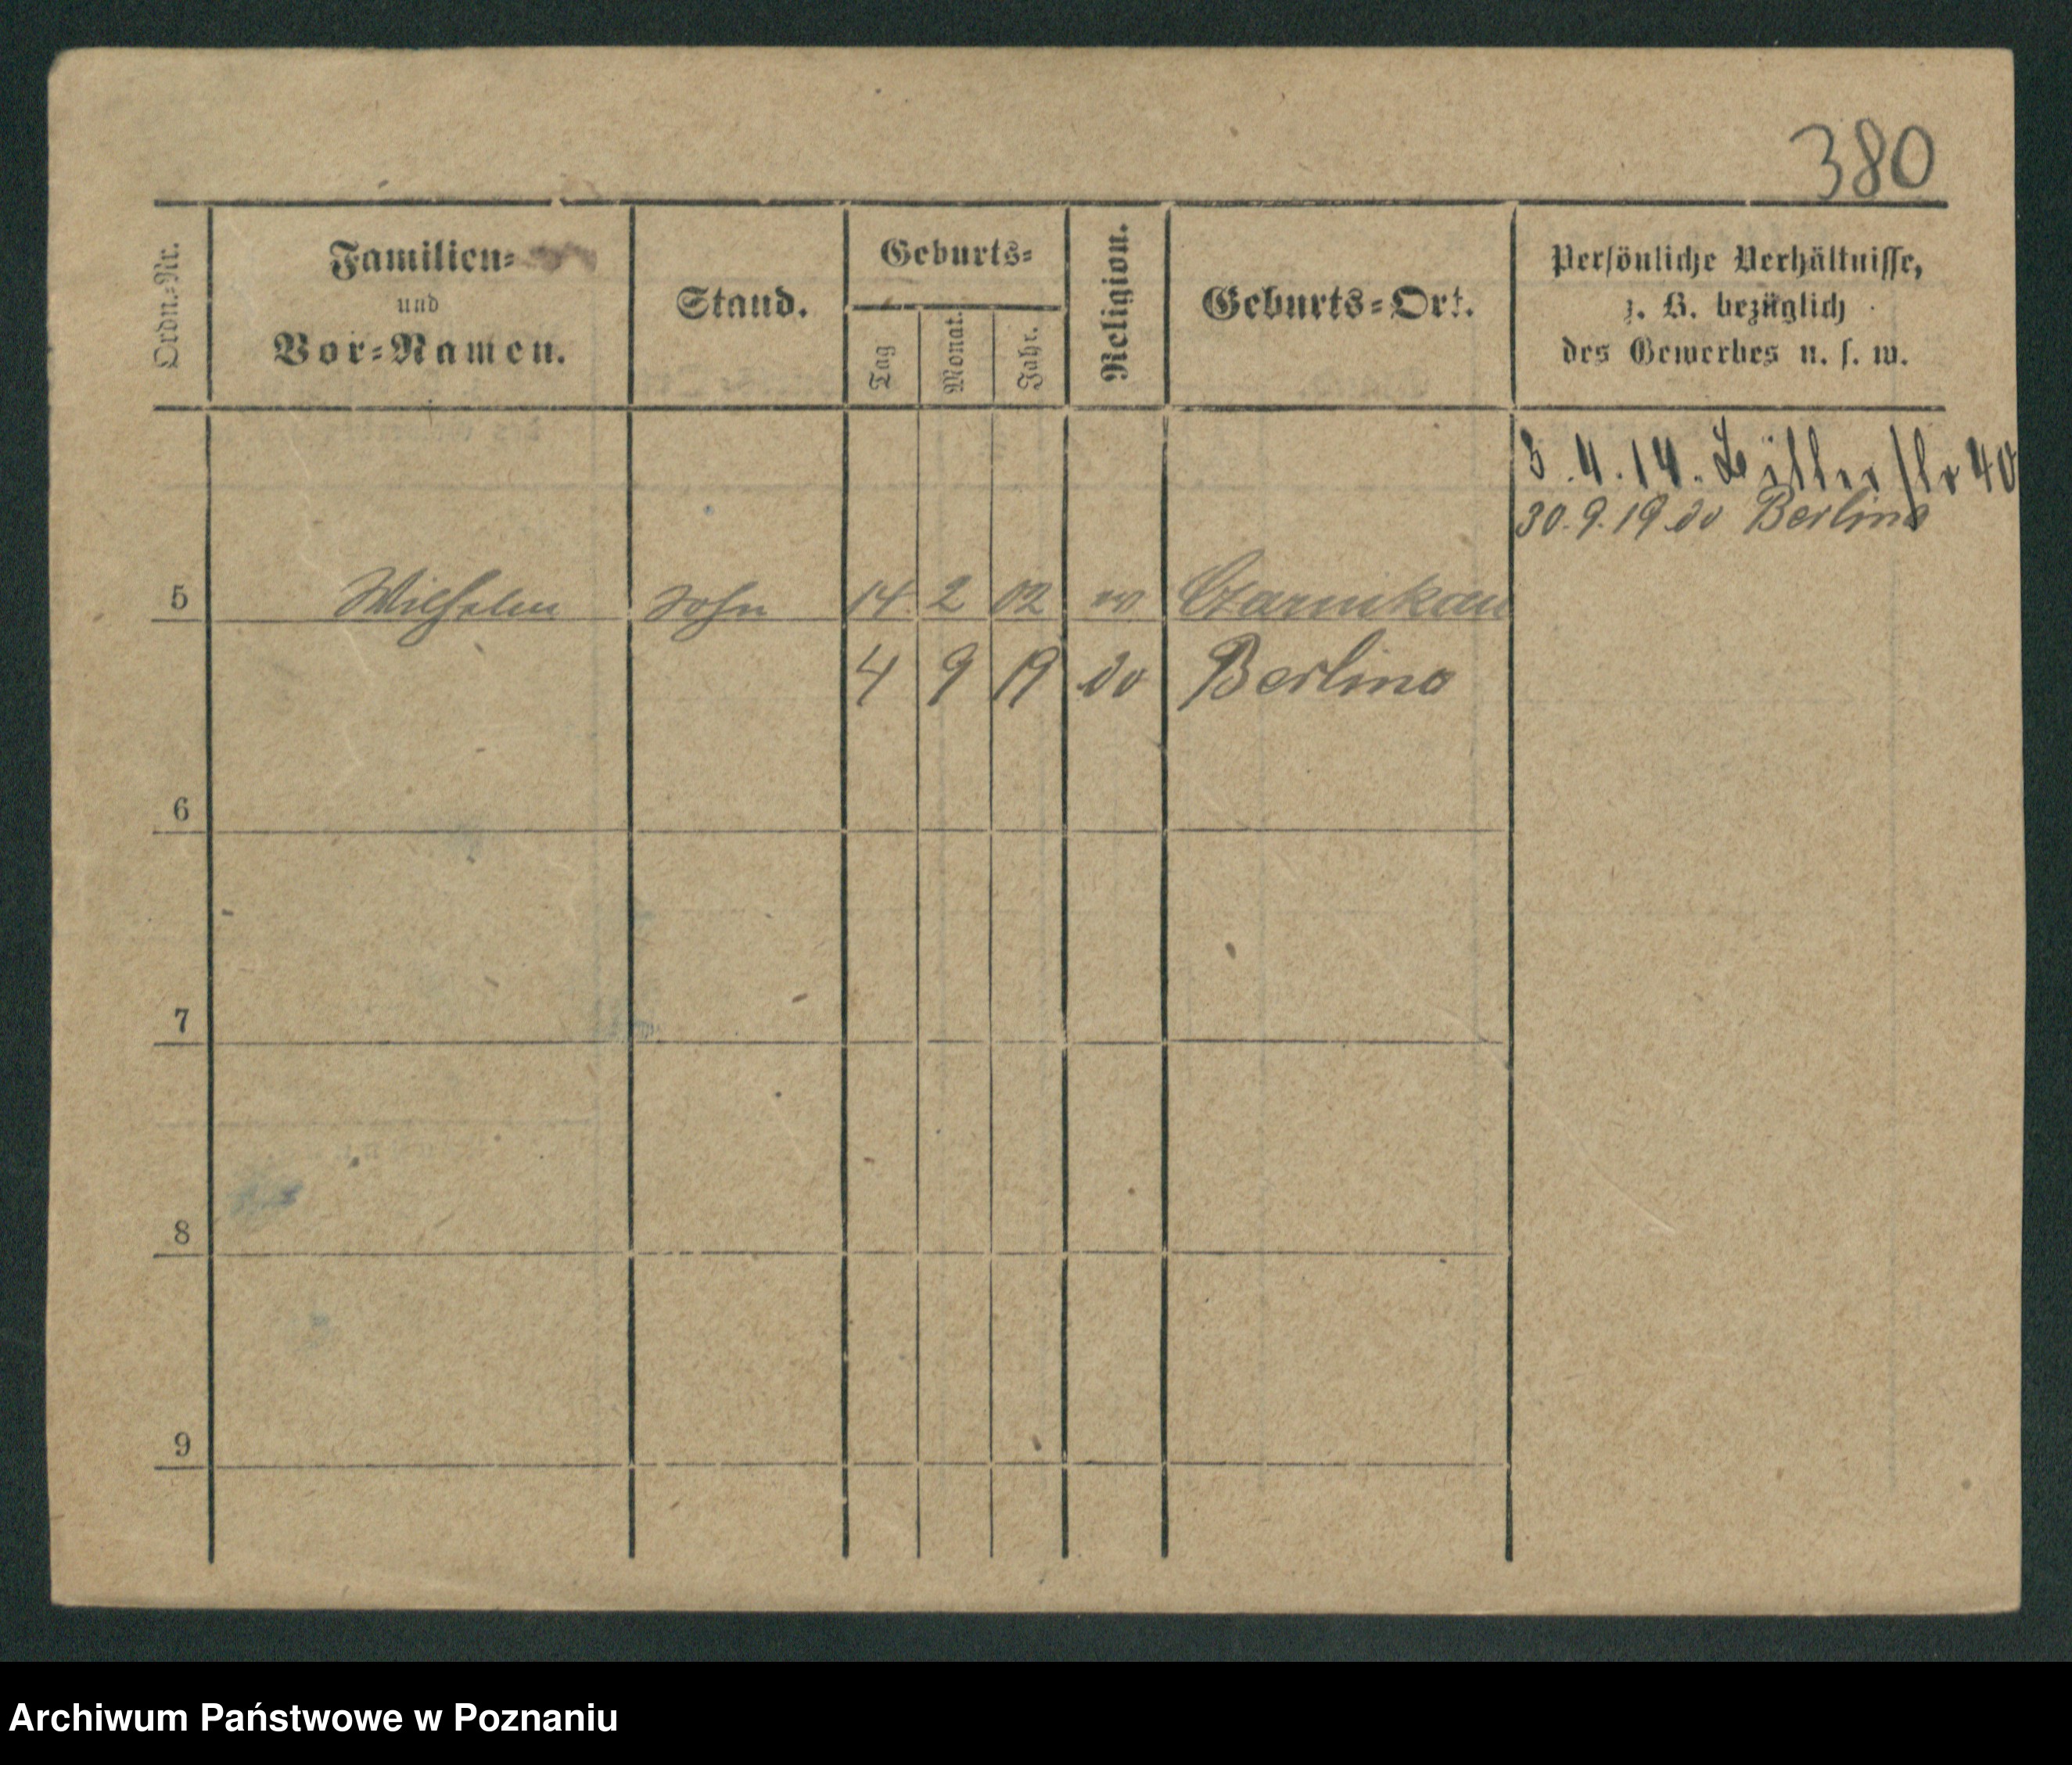 380
Ordn.-Nr.
Familien-
und
Vor-Namen.
Stand.
Geburts-
Tag
Monat.
Jahr.
Religion.
Geburts-Ort.
Persönliche Verhältnisse,
z. B. bezüglich
des Gewerbes u. s. w.
3.4.14. 40
30.9.19 do Berlina
5 Wilhelm Sohn 14 2 02 ev Czarnikau
4 9 19 do Berlina
6
7
8
9
Archiwum Państwowe w Poznaniu